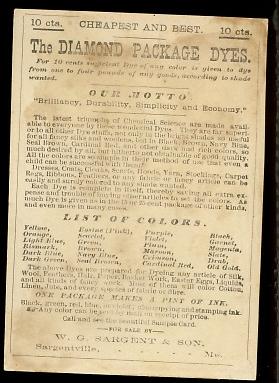 10 cts. CHEAPEST AND BEST. 10 cts.
The DIAMOND PACKAGE DYES.
For 10 cents sufficient Dye of any color is given to dye
from one to four pounds of any goods, according to shade
wanted.
OUR MOTTO:
"Brilliancy, Durability, Simplicity and Economy."
The latest triumphs of Chemical Science are made avail-
able to everyone by these wonderful Dyes. They are far superi-
or to all other Dye stuffs, not only in the bright shades so useful
for all fancy silks and woolens, but in Black, Brown, Navy Blue,
Seal Brown, Cardinal Red, and other dark and rich colors, so
much desired by all, but hitherto not obtainable of good quality.
All the colors are so simple in their method of use that even a
child can be successful with them.
Dresses, Coats, Cloaks, Scarfs, Hoods, Yarn, Stockings, Carpet
Rags, Ribbons, Feathers, or any fabric or fancy article can be
easily and perfectly colored to any shade wanted.
Each Dye is complete in itself, thereby saving all extra ex-
pense and trouble of buying other articles to set the colors. As
much Dye is given as in the 25-cent package of other kinds,
and even more in many cases.
LIST OF COLORS.
Yellow, Eosine (Pink), Purple, Black,
Orange, Scarlet, Violet, Garnet,
Light Blue, Green, Plum, Magenta,
Bismarck, Brown, Maroon, Slate,
Dark Blue, Navy Blue, Crimson, Drab,
Dark Green, Seal Brown, Cardinal Red, Old Gold.
The above Dyes are prepared for Dyeing any article of Silk,
Wool, Feathers, Hair, Paper, Basket Work, Easter Eggs, Liquids,
and all kinds of fancy work. Most of them will color Cotton,
Linen, Jute, and every species of fabric or fibre.
ONE PACKAGE MAKES A PINT OF INK.
Black, green, red, blue, or violet; also copying and stamping ink.
Any color can be sent by mail on receipt of price.
Call and see the beautiful Sample Card.
FOR SALE BY
W. G. SARGENT & SON,
Sargentville, Me.